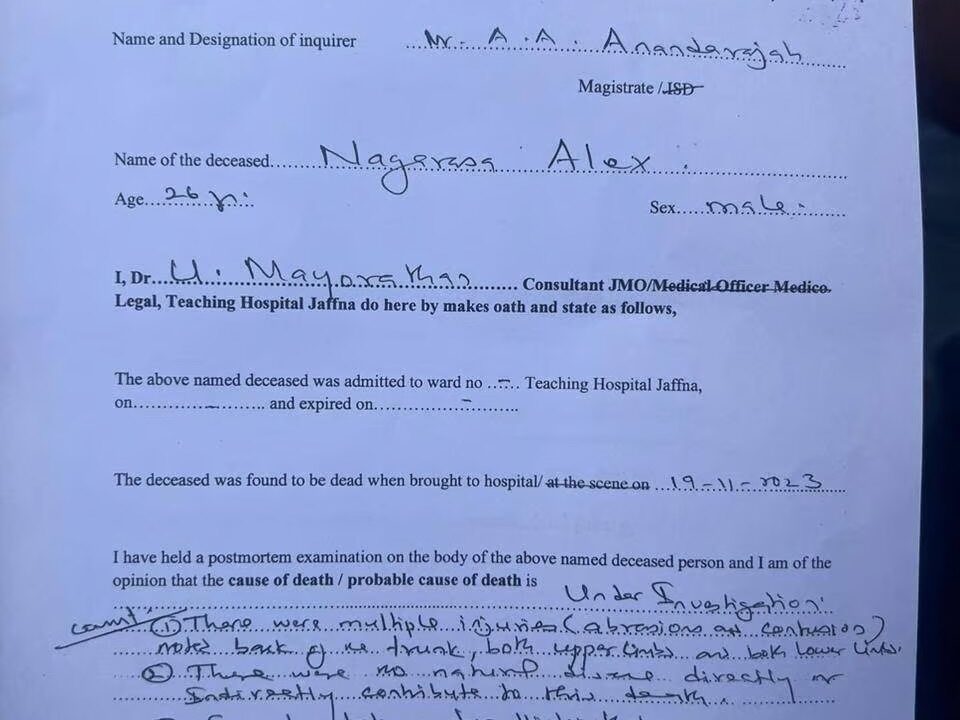 Name and Designation of inquirer ....Mr. A .A. Anandarajah......
Magistrate /JSD
Name of the deceased......Nagarasa Alex.......
Age...26 yr.... Sex.....male.....
I, Dr...U. Mayorathan.......... Consultant JMO/Medical Officer Medico.
Legal, Teaching Hospital Jaffna do here by makes oath and state as follows,
The above named deceased was admitted to ward no ..–.. Teaching Hospital Jaffna,
on............–......... and expired on...............–.........
The deceased was found to be dead when brought to hospital/ at the scene on ...19-11-2023
I have held a postmortem examination on the body of the above named deceased person and I am of the
opinion that the cause of death / probable cause of death is
Under Investigation.
(1) There were multiple injuries (abrasions and contusion)
noted back of the trunk, both upper limbs and both lower limbs.
(2) There were no natural disease directly or
Indirectly contribute to this death.